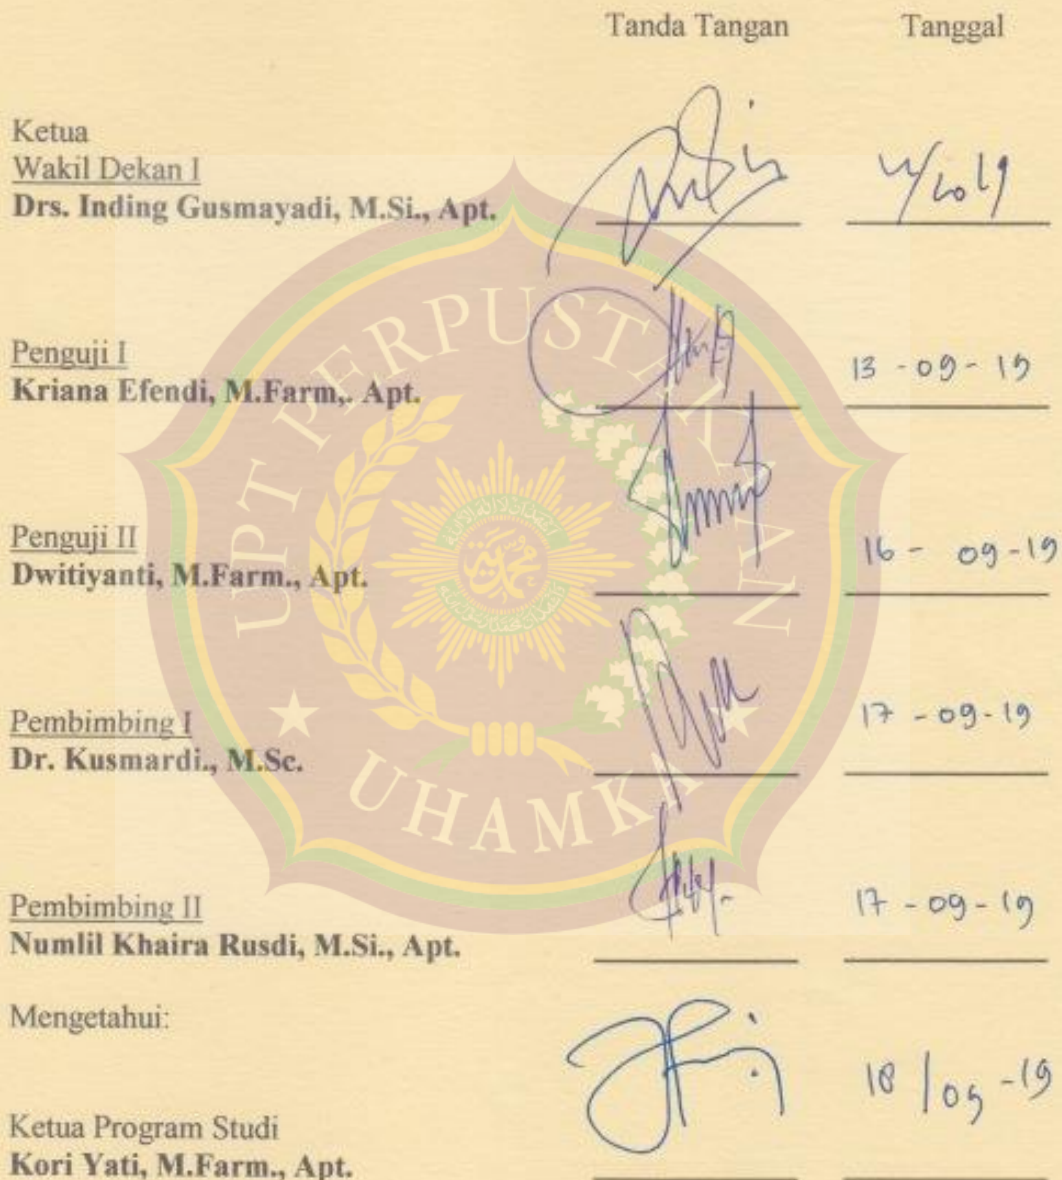 Tanda Tangan Tanggal
Ketua
Wakil Dekan I
Drs. Inding Gusmayadi, M.Si., Apt.
Penguji I
Kriana Efendi, M.Farm,. Apt.
13 - 09 - 19
Penguji II
Dwitiyanti, M.Farm., Apt.
16 - 09 - 19
Pembimbing I
Dr. Kusmardi., M.Sc.
17 - 09 - 19
Pembimbing II
Numlil Khaira Rusdi, M.Si., Apt.
17 - 09 - 19
Mengetahui:
Ketua Program Studi
Kori Yati, M.Farm., Apt.
UPT PERPUSTAKAAN
UHAMKA